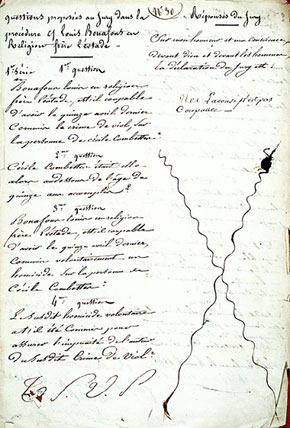 questions proposées au Jury dans la
procédure cf Louis Bonafous en
Religion frère Léotade.
1ère série 1ère question
Bonafous louis en religion
frère Léotade, est-il coupable
d'avoir le quinze avril dernier
Commis le crime de viol, sur
la personne de cécile Combettes?
2me question
Cécile Combettes était-elle
alors au dessous de l'âge de
quinze ans accomplis?
3me question
Bonafous louis en religion
frère Léotade, est-il coupable
d'avoir le quinze avril dernier,
Commis volontairement un
homicide sur la personne de
Cécile Combettes?
4me question
Le susdit homicide volontaire
a-t-il été Commis pour
assurer l'impunité de l'auteur
du susdit Crime de Viol?
T. S. V. P.
N° 30
Réponses du Jury
Sur mon honneur et ma conscience
devant dieu et devant les hommes
la déclaration du Jury est :
Non l'accusé n'est pas
Coupable